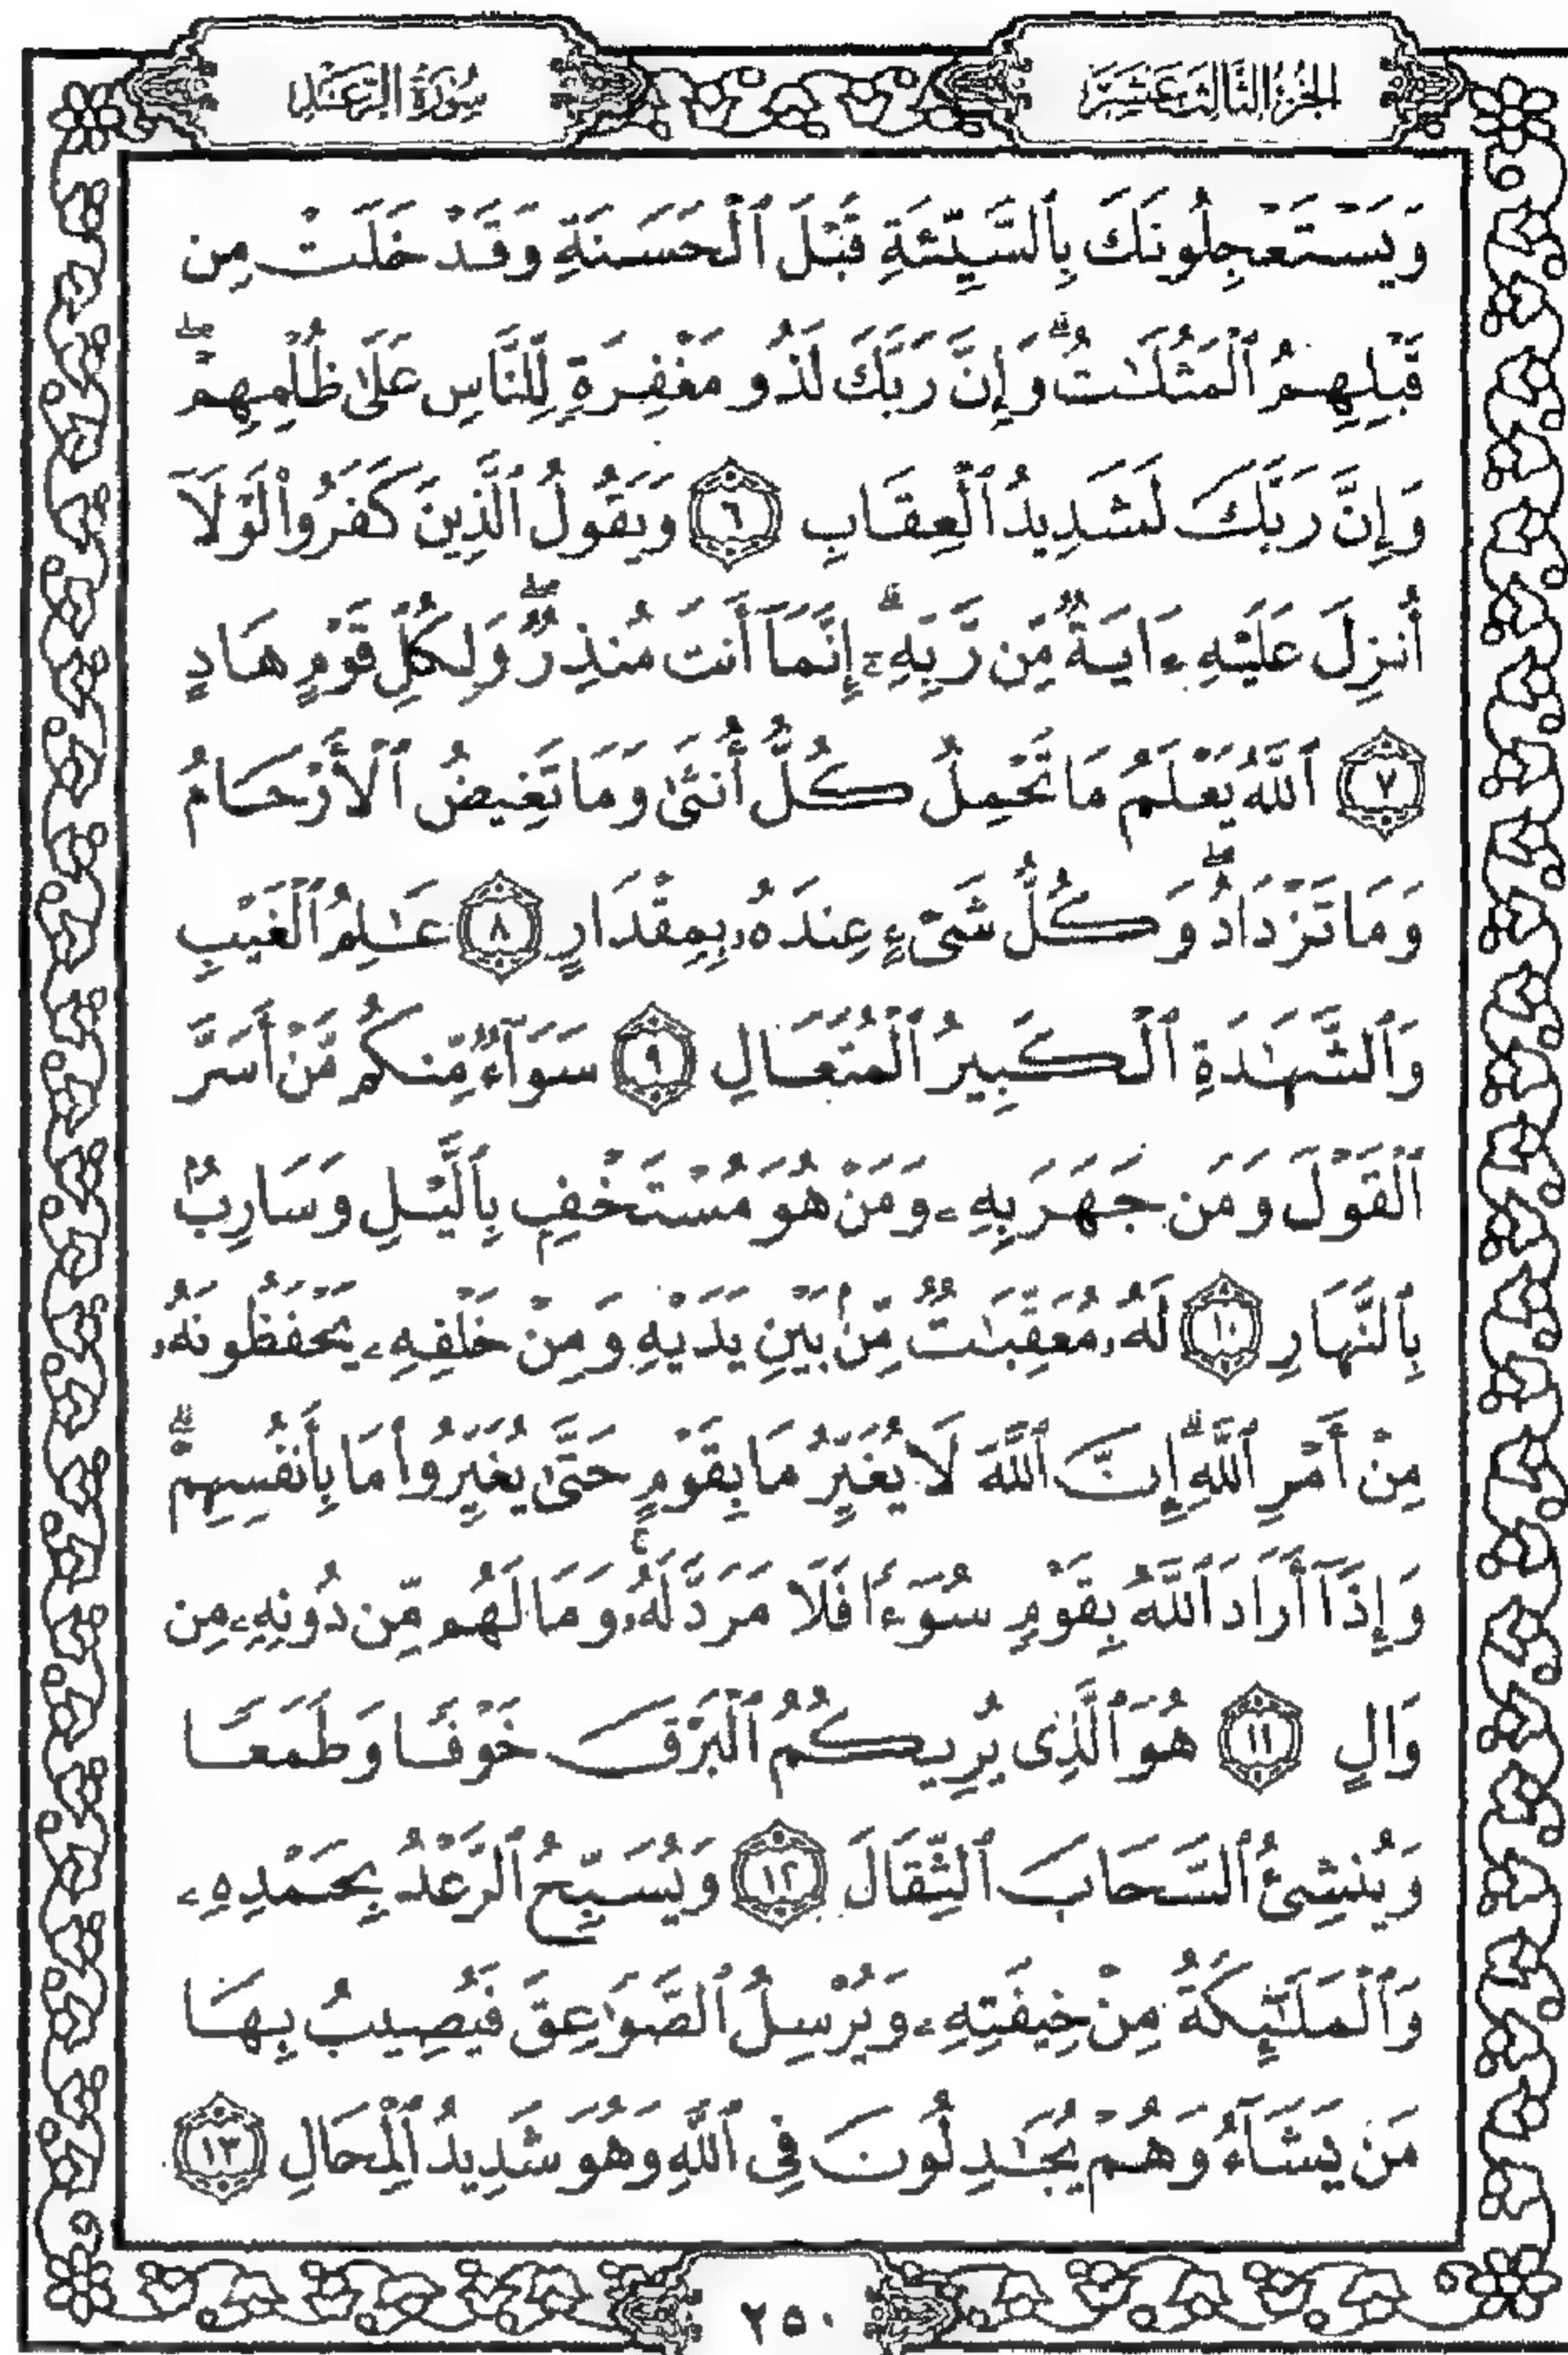 الجزء الثالث عشر
سورة الرعد
وَيَسْتَعْجِلُونَكَ بِٱلسَّيِّئَةِ قَبْلَ ٱلْحَسَنَةِ وَقَدْ خَلَتْ مِن
قَبْلِهِمُ ٱلْمَثُلَٰتُ ۗ وَإِنَّ رَبَّكَ لَذُو مَغْفِرَةٍ لِّلنَّاسِ عَلَىٰ ظُلْمِهِمْ ۖ
وَإِنَّ رَبَّكَ لَشَدِيدُ ٱلْعِقَابِ ٦ وَيَقُولُ ٱلَّذِينَ كَفَرُوا۟ لَوْلَآ
أُنزِلَ عَلَيْهِ ءَايَةٌ مِّن رَّبِّهِۦٓ ۗ إِنَّمَآ أَنتَ مُنذِرٌ ۖ وَلِكُلِّ قَوْمٍ هَادٍ
٧ ٱللَّهُ يَعْلَمُ مَا تَحْمِلُ كُلُّ أُنثَىٰ وَمَا تَغِيضُ ٱلْأَرْحَامُ
وَمَا تَزْدَادُ ۖ وَكُلُّ شَىْءٍ عِندَهُۥ بِمِقْدَارٍ ٨ عَٰلِمُ ٱلْغَيْبِ
وَٱلشَّهَٰدَةِ ٱلْكَبِيرُ ٱلْمُتَعَالِ ٩ سَوَآءٌ مِّنكُم مَّنْ أَسَرَّ
ٱلْقَوْلَ وَمَن جَهَرَ بِهِۦ وَمَنْ هُوَ مُسْتَخْفٍۭ بِٱلَّيْلِ وَسَارِبٌۢ
بِٱلنَّهَارِ ١٠ لَهُۥ مُعَقِّبَٰتٌ مِّنۢ بَيْنِ يَدَيْهِ وَمِنْ خَلْفِهِۦ يَحْفَظُونَهُۥ
مِنْ أَمْرِ ٱللَّهِ ۗ إِنَّ ٱللَّهَ لَا يُغَيِّرُ مَا بِقَوْمٍ حَتَّىٰ يُغَيِّرُوا۟ مَا بِأَنفُسِهِمْ ۗ
وَإِذَآ أَرَادَ ٱللَّهُ بِقَوْمٍ سُوٓءًا فَلَا مَرَدَّ لَهُۥ ۚ وَمَا لَهُم مِّن دُونِهِۦ مِن
وَالٍ ١١ هُوَ ٱلَّذِى يُرِيكُمُ ٱلْبَرْقَ خَوْفًا وَطَمَعًا
وَيُنشِئُ ٱلسَّحَابَ ٱلثِّقَالَ ١٢ وَيُسَبِّحُ ٱلرَّعْدُ بِحَمْدِهِۦ
وَٱلْمَلَٰٓئِكَةُ مِنْ خِيفَتِهِۦ وَيُرْسِلُ ٱلصَّوَٰعِقَ فَيُصِيبُ بِهَا
مَن يَشَآءُ وَهُمْ يُجَٰدِلُونَ فِى ٱللَّهِ وَهُوَ شَدِيدُ ٱلْمِحَالِ ١٣
٢٥٠